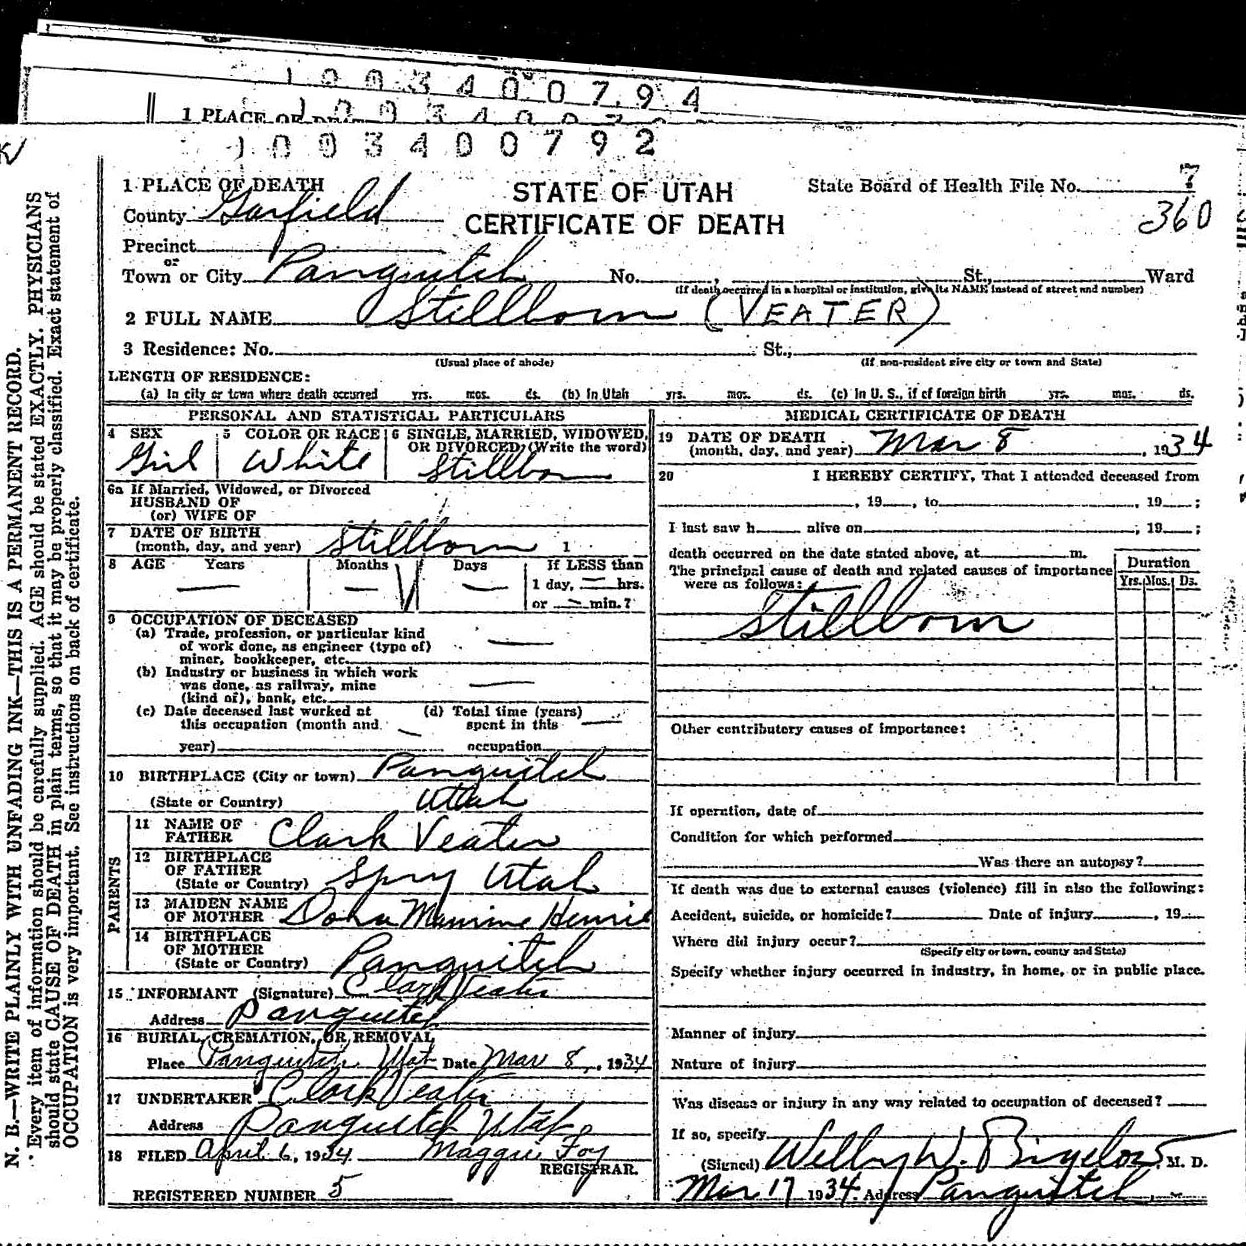 1003400794
1 PLACE OF DEA
1003400792
1 PLACE OF DEATH
STATE OF UTAH
State Board of Health File No. 7
360
County Garfield
CERTIFICATE OF DEATH
Precinct
or
Town or City Panguitch No. , St., Ward
(If death occurred in a hospital or institution, give its NAME instead of street and number)
2 FULL NAME Stillborn (VEATER)
3 Residence: No. St.,
(Usual place of abode) (If non-resident give city or town and State)
LENGTH OF RESIDENCE:
(a) In city or town where death occurred yrs. mos. ds. (b) In Utah yrs. mos. ds. (c) In U. S., if of foreign birth yrs. mos. ds.
PERSONAL AND STATISTICAL PARTICULARS
4 SEX 5 COLOR OR RACE 6 SINGLE, MARRIED, WIDOWED,
OR DIVORCED (Write the word)
Girl White Stillborn
6a If Married, Widowed, or Divorced
HUSBAND OF
(or) WIFE OF
7 DATE OF BIRTH
(month, day, and year) Stillborn 1
8 AGE Years Months Days If LESS than
1 day, — hrs.
or — min.?
9 OCCUPATION OF DECEASED
(a) Trade, profession, or particular kind
of work done, as engineer (type of)
miner, bookkeeper, etc. —
(b) Industry or business in which work
was done, as railway, mine
(kind of), bank, etc. —
(c) Date deceased last worked at (d) Total time (years)
this occupation (month and spent in this —
year) — occupation
10 BIRTHPLACE (City or town) Panguitch
(State or Country) Utah
PARENTS
11 NAME OF
FATHER Clark Veater
12 BIRTHPLACE
OF FATHER
(State or Country) Spry Utah
13 MAIDEN NAME
OF MOTHER Maurine Henrie
14 BIRTHPLACE
OF MOTHER
(State or Country) Panguitch
15 INFORMANT (Signature) Clark Veater
Address Panguitch
16 BURIAL, CREMATION, OR REMOVAL
Place Panguitch, Utah Date Mar 8, 1934
17 UNDERTAKER Clark Veater
Address Panguitch Utah
18 FILED April 6, 1934 Maggie Foy
REGISTRAR.
REGISTERED NUMBER 5
MEDICAL CERTIFICATE OF DEATH
19 DATE OF DEATH
(month, day, and year) Mar 8, 1934
20 I HEREBY CERTIFY, That I attended deceased from
, 19 , to , 19 ;
I last saw h alive on , 19 ;
death occurred on the date stated above, at m.
The principal cause of death and related causes of importance
were as follows:
Duration
Yrs. Mos. Ds.
Stillborn
Other contributory causes of importance:
If operation, date of
Condition for which performed
Was there an autopsy?
If death was due to external causes (violence) fill in also the following:
Accident, suicide, or homicide? Date of injury , 19
Where did injury occur?
(Specify city or town, county and State)
Specify whether injury occurred in industry, in home, or in public place.
Manner of injury
Nature of injury
Was disease or injury in any way related to occupation of deceased?
If so, specify
(Signed) Welby W. Bigelow, M. D.
Mar 17 1934 Address Panguitch
N. B.—WRITE PLAINLY WITH UNFADING INK—THIS IS A PERMANENT RECORD.
Every item of information should be carefully supplied. AGE should be stated EXACTLY. PHYSICIANS
should state CAUSE OF DEATH in plain terms, so that it may be properly classified. Exact statement of
OCCUPATION is very important. See instructions on back of certificate.